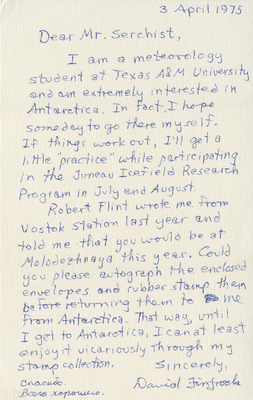 3 April 1975
Dear Mr. Serchist,
I am a meteorology
student at Texas A&M University
and am extremely interested in
Antarctica. In fact, I hope
someday to go there myself.
If things work out, I'll get a
little "practice" while participating
in the Juneau Icefield Research
Program in July and August.
Robert Flint wrote me from
Vostok Station last year and
told me that you would be at
Molodezhnaya this year. Could
you please autograph the enclosed
envelopes and rubber stamp them
before returning them to me
from Antarctica. That way, until
I get to Antarctica, I can at least
enjoy it vicariously through my
stamp collection.
Sincerely,
Спасибо.
Всего хорошего.
David